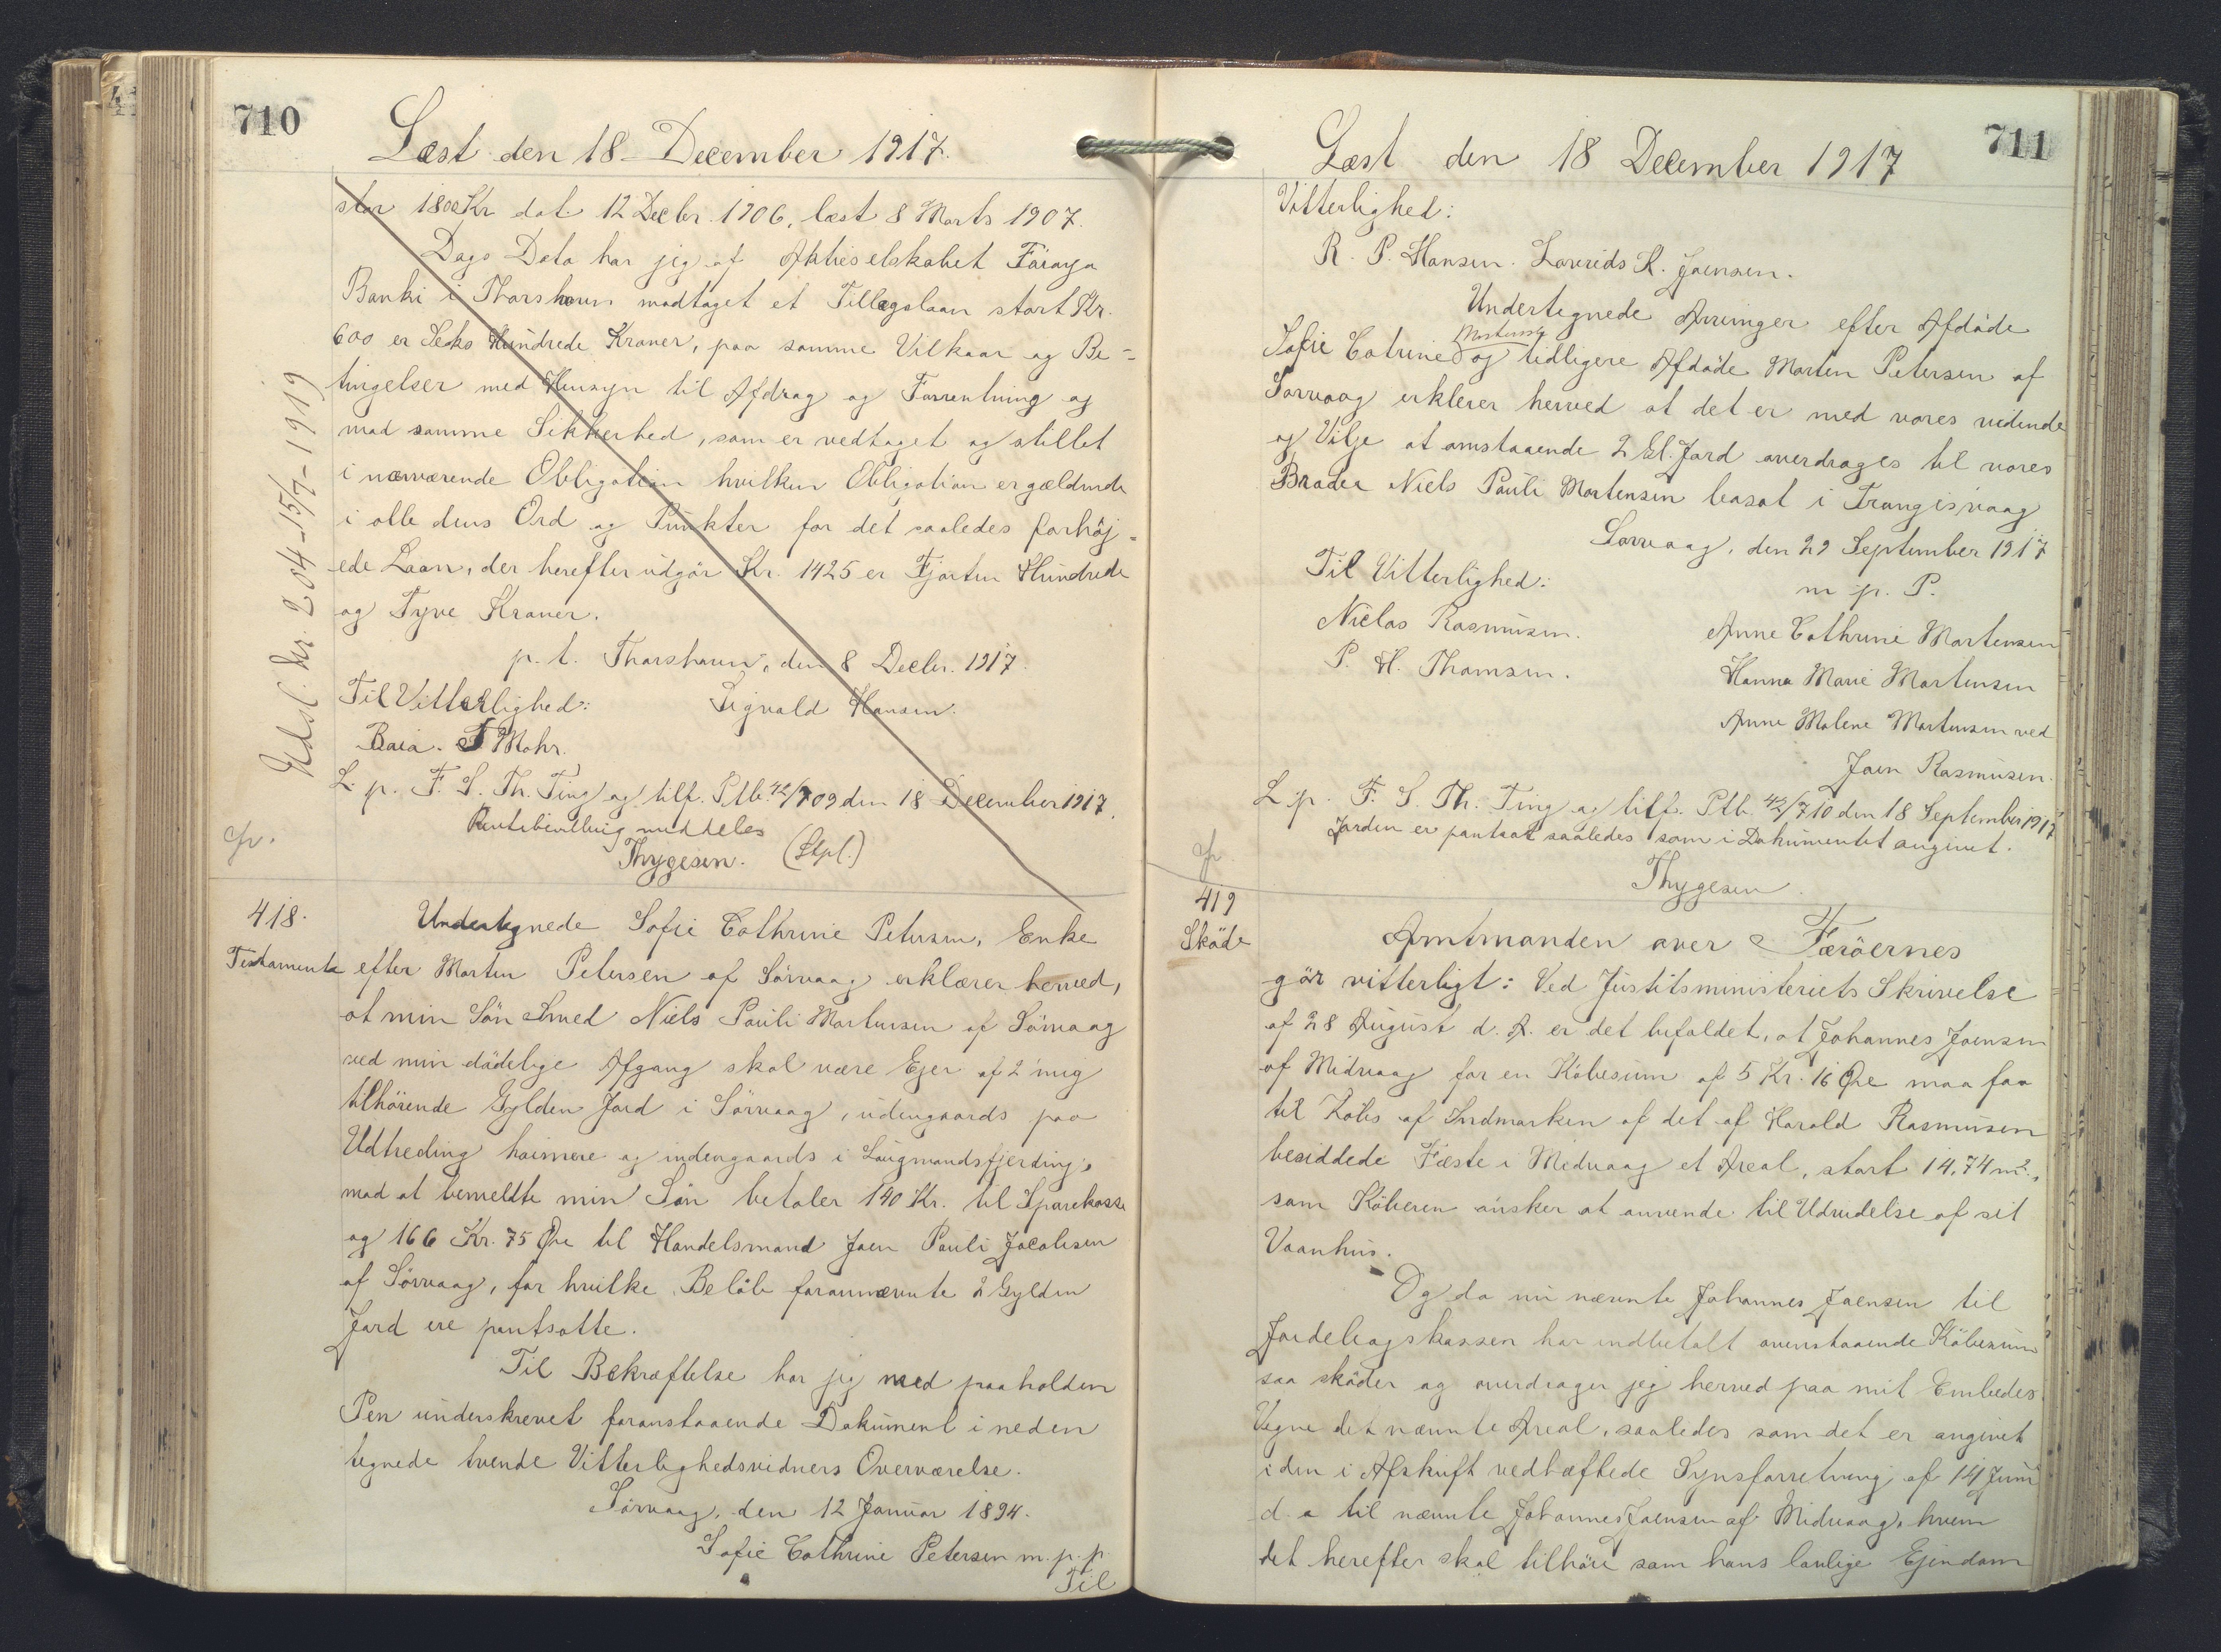 710
Læst den 18 December 1917.
stor 1800 Kr dat 12 Decbr. 1906, læst 8 Marts 1907.
Dags Dato har jeg af Aktieselskabet Föroya
Banki i Thorshavn modtaget et Tillægslaan stort Kr.
600 er Seks Hundrede Kroner, paa samme Vilkaar og Be-
tingelser med Hensyn til Afdrag og Forrentning og
mod samme Sikkerhed, som er vedtaget og stillet
i nærværende Obligation hvilken Obligation er gældende
i alle dens Ord og Punkter for det saaledes forhöj-
ede Laan, der herefter udgör Kr. 1425 er Fjorten Hundrede
og Tyve Kroner.
p. t. Thorshavn, den 8 Decbr. 1917.
Til Vitterlighed: Sigvald Hansen.
Mohr.
L. p. F. S. Th. Ting og tilf. Ptb. 42/709 den 18 December 1917.
meddeles
Thygesen. (Stpl.)
Udsl. Nr. 204-15/7-1919
cfr.
418.
Testamente
Undertegnede Sofie Cathrine Petersen, Enke
efter Morten Petersen af Sörvaag erklærer herved,
at min Sön Smed Niels Pauli Mortensen af Sörvaag
ved min dödelige Afgang skal være Ejer af 2 mig
tilhörende Gylden Jord i Sörvaag, udengaards paa
Udtreding haimere og indengaards i Laugmandsfjerding,
mod at bemeldte min Sön betaler 140 Kr. til Sparekasse
og 166 Kr. 75 Öre til Handelsmand Joen Pauli Jacobsen
af Sörvaag, for hvilke Belöb forannævnte 2 Gylden
Jord ere pantsatte.
Til Bekræftelse har jeg med paaholden
Pen underskrevet foranstaaende Dokument i neden
tegnede tvende Vitterlighedsvidners Overværelse.
Sörvaag, den 12 Januar 1894.
Sofie Cathrine Petersen m. p. p.
Til
711
Læst den 18 December 1917
Vitterlighed:
R. P. Hansen. Lavrids R. Joensen.
Undertegnede Arvinger efter Afdöde
Sofie Catrine Mortensen og tidligere Afdöde Morten Petersen af
Sorvaag erklerer herved at det er med vores vidende
og Vilje at omstaaende 2 Gl. Jord overdrages til vores
Broder Niels Pauli Mortensen bosat i Trangisvaag
Sorvaag, den 29 September 1917
Til Vitterlighed: m p. P.
Niclas Rasmusen. Anne Cathrine Mortensen
P. H. Thomsen. Hanna Marie Mortensen
Anne Malene Mortensen ved
Joen Rasmusen.
L. p. F. S. Th. Ting og tilf. Ptb. 42/710 den 18 September 1917
Jorden er pantsat saaledes som i Dokumentet angivet.
Thygesen.
cfr.
419
Sköde
Amtmanden over Færöernes
gör vitterligt: Ved Justitsministeriets Skrivelse
af 28 August d. A. er det bifaldet, at Johannes Joensen
af Midvaag for en Köbesum af 5 Kr. 16 Öre maa faa
til Köbs af Indmarken af det af Harald Rasmusen
besiddede Fæste i Midvaag et Areal, stort 14,74 m²,
som Köberen önsker at anvende til Udvidelse af sit
Vaanhus.
Og da nu nævnte Johannes Joensen til
Jordebogskassen har indbetalt ovenstaaende Köbesum
saa sköder og overdrager jeg herved paa mit Embedes
Vegne det nævnte Areal, saaledes som det er angivet
i den i Afskrift vedhæftede Synsforretning af 14 Juni
d. a til nævnte Johannes Joensen af Midvaag, hvem
det herefter skal tilhöre som hans lovlige Ejendom